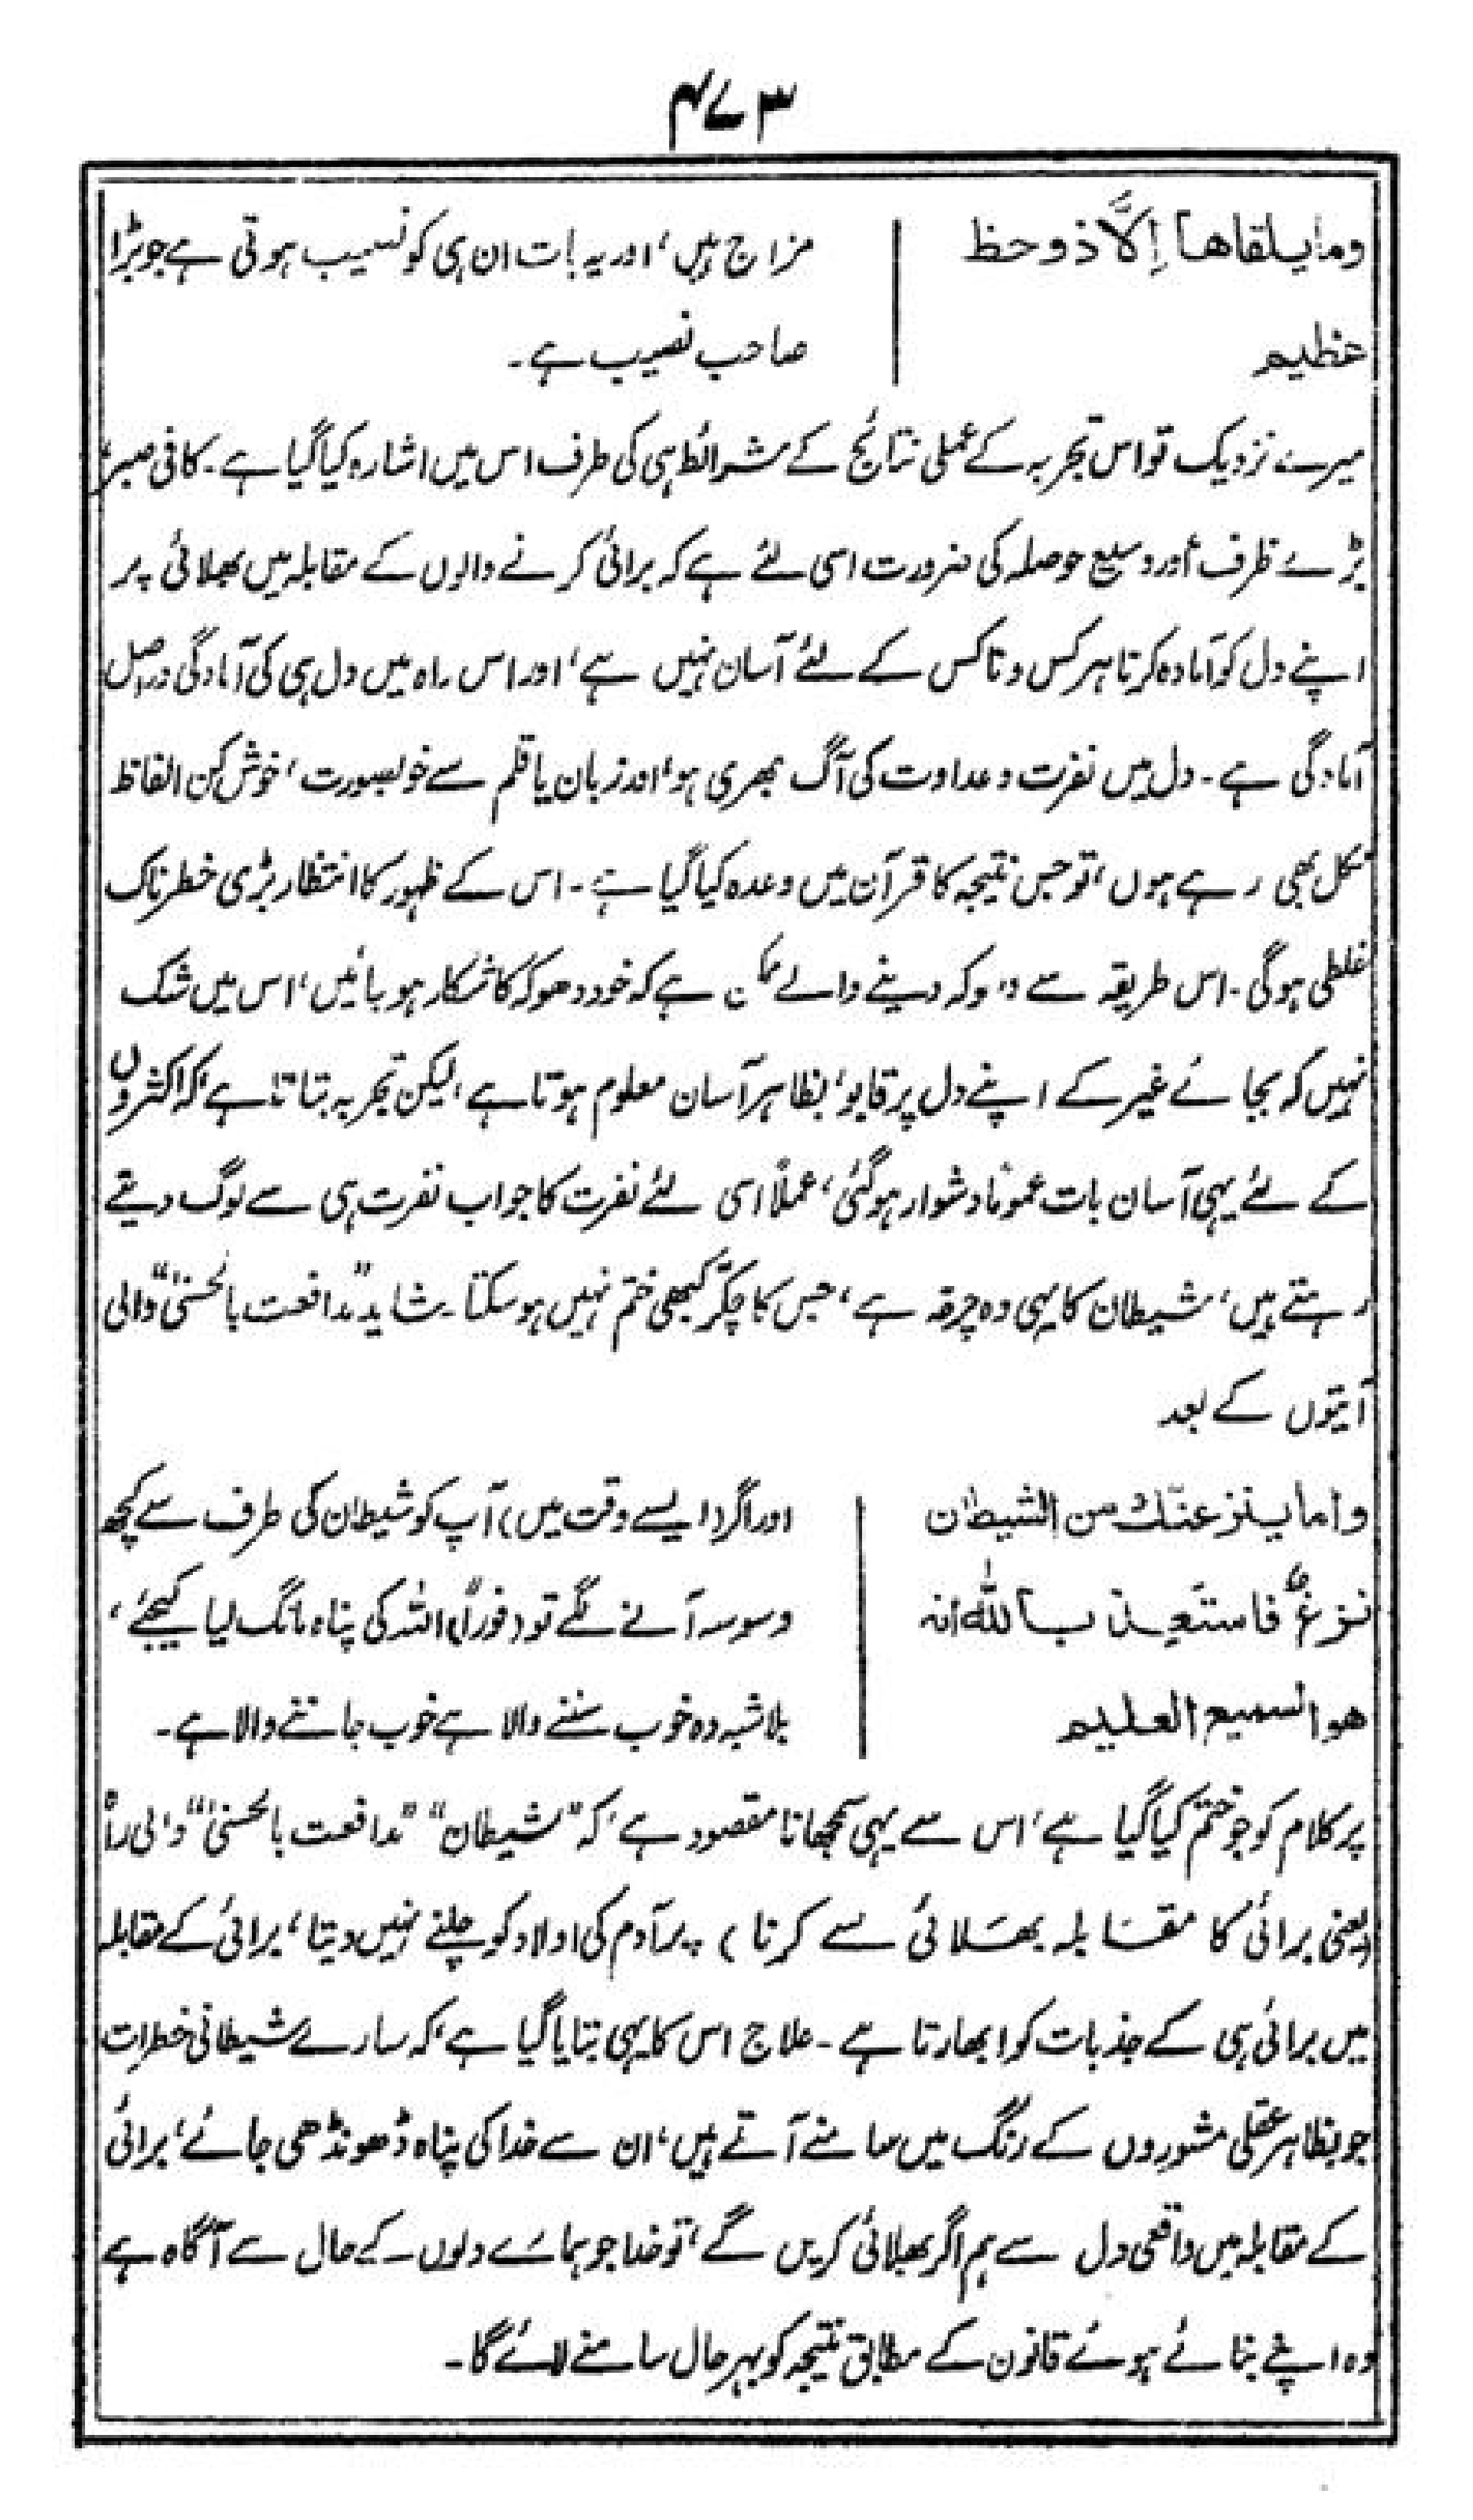 ۴۷۳
وما یلقاھا اِلَّا ذو حظ
عظیم
مزاج ہیں، اور یہ بات ان ہی کو نصیب ہوتی ہے جو بڑا
صاحب نصیب ہے۔
میرے نزدیک تو اس تجربہ کے عملی نتائج کے شرائط ہی کی طرف اس میں اشارہ کیا گیا ہے۔ کافی صبر،
بڑے ظرف اور وسیع حوصلہ کی ضرورت اسی لئے ہے کہ برائی کرنے والوں کے مقابلہ میں بھلائی پر
اپنے دل کو آمادہ کرنا ہر کس و ناکس کے لئے آسان نہیں ہے، اور اس راہ میں دل ہی کی آمادگی دراصل
آمادگی ہے۔ دل میں نفرت و عداوت کی آگ بھری ہو، اور زبان یا قلم سے خوبصورت، خوش کن الفاظ
نکل بھی رہے ہوں، تو جس نتیجہ کا قرآن میں وعدہ کیا گیا ہے۔ اس کے ظہور کا انتظار بڑی خطرناک
غلطی ہوگی۔ اس طریقہ سے دھوکہ دینے والے ممکن ہے کہ خود دھوکہ کا شکار ہو جائیں، اس میں شک
نہیں کہ بجائے غیر کے اپنے دل پر قابو، بظاہر آسان معلوم ہوتا ہے، لیکن تجربہ بتاتا ہے، کہ اکثروں
کے لئے یہی آسان بات عموماً دشوار ہوگئی، عملاً اسی لئے نفرت کا جواب نفرت ہی سے لوگ دیتے
رہتے ہیں، شیطان کا یہی وہ چرقہ ہے، جس کا چکّر کبھی ختم نہیں ہو سکتا۔ شاید "مدافعت بالحسنیٰ" والی
آیتوں کے بعد
واما ینزغنّك من الشیطٰن
نزغٌ فاستعِذ باللّٰه انہ
ھو السمیع العلیم
اور اگر (ایسے وقت میں) آپ کو شیطان کی طرف سے کچھ
وسوسہ آنے لگے تو (فوراً) اللہ کی پناہ مانگ لیا کیجئے،
بلاشبہ وہ خوب سننے والا ہے خوب جاننے والا ہے۔
پر کلام کو جو ختم کیا گیا ہے، اس سے یہی سمجھانا مقصود ہے، کہ "شیطان" "مدافعت بالحسنیٰ" والی راہ
(یعنی برائی کا مقابلہ بھلائی سے کرنا) پر آدم کی اولاد کو چلنے نہیں دیتا، برائی کے مقابلہ
میں برائی ہی کے جذبات کو ابھارتا ہے۔ علاج اس کا یہی بتایا گیا ہے، کہ سارے شیطانی خطرات
جو بظاہر عقلی مشوروں کے رنگ میں سامنے آتے ہیں، ان سے خدا کی پناہ ڈھونڈھی جائے، برائی
کے مقابلہ میں واقعی دل سے ہم اگر بھلائی کریں گے، تو خدا جو ہمارے دلوں کے حال سے آگاہ ہے
وہ اپنے بنائے ہوئے قانون کے مطابق نتیجہ کو بہرحال سامنے لائے گا۔